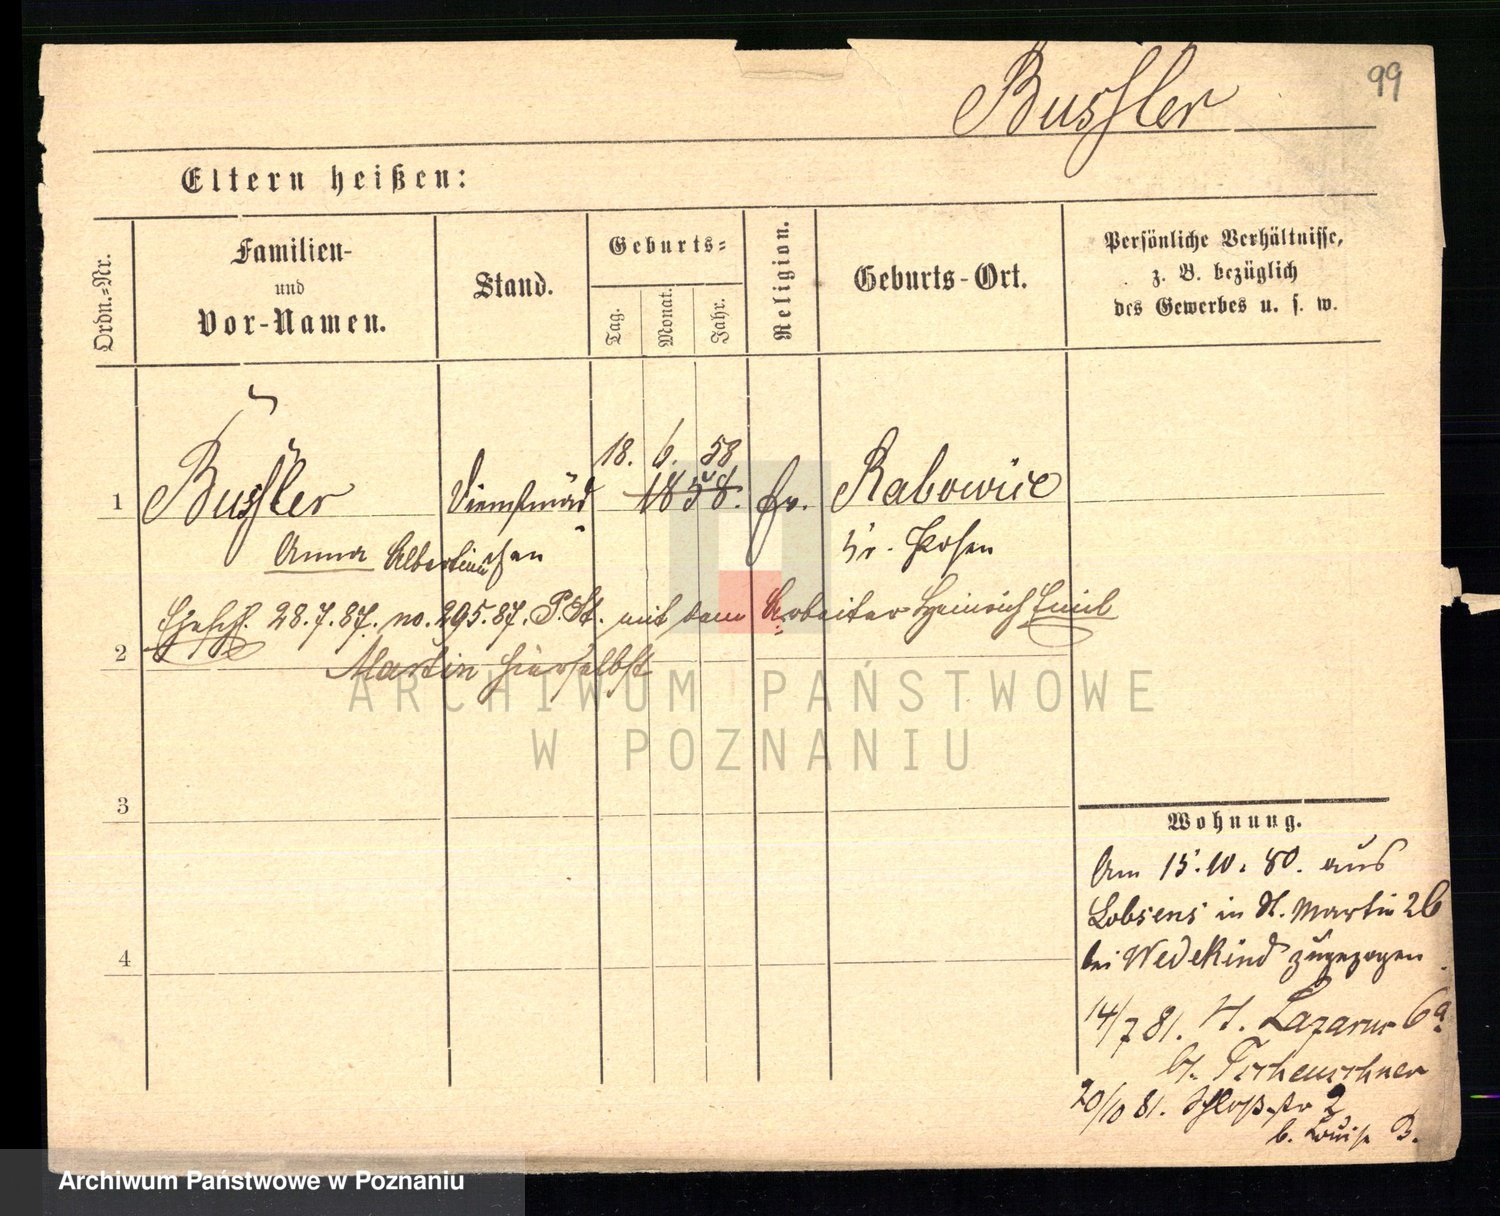 99
Bussler
Eltern heißen:
Ordn.-Nr.
Familien-
und
Vor-Namen.
Stand.
Geburts-
Tag.
Monat.
Jahr.
Religion.
Geburts-Ort.
Persönliche Verhältnisse,
z. B. bezüglich
des Gewerbes u. s. w.
18. 6. 58
1 Bussler Dienstmäd 1858. Ev. Rabowice
Anna Albertine chen Kr. Posen
Ehesch. 28.7.87. no. 295.87. P. St. mit dem Arbeiter Heinrich Emil
2
Martin hierselbst
ARCHIWUM PAŃSTWOWE
W POZNANIU
3
4
Wohnung.
Am 15.10.80. aus
Lobsens in St. Martin 26
bei Wedekind zugezogen
14/7 81. St. Lazarus 6a
b. Tscheuschner
20/10 81. Schloßstr 2
b. Louise B.
Archiwum Państwowe w Poznaniu